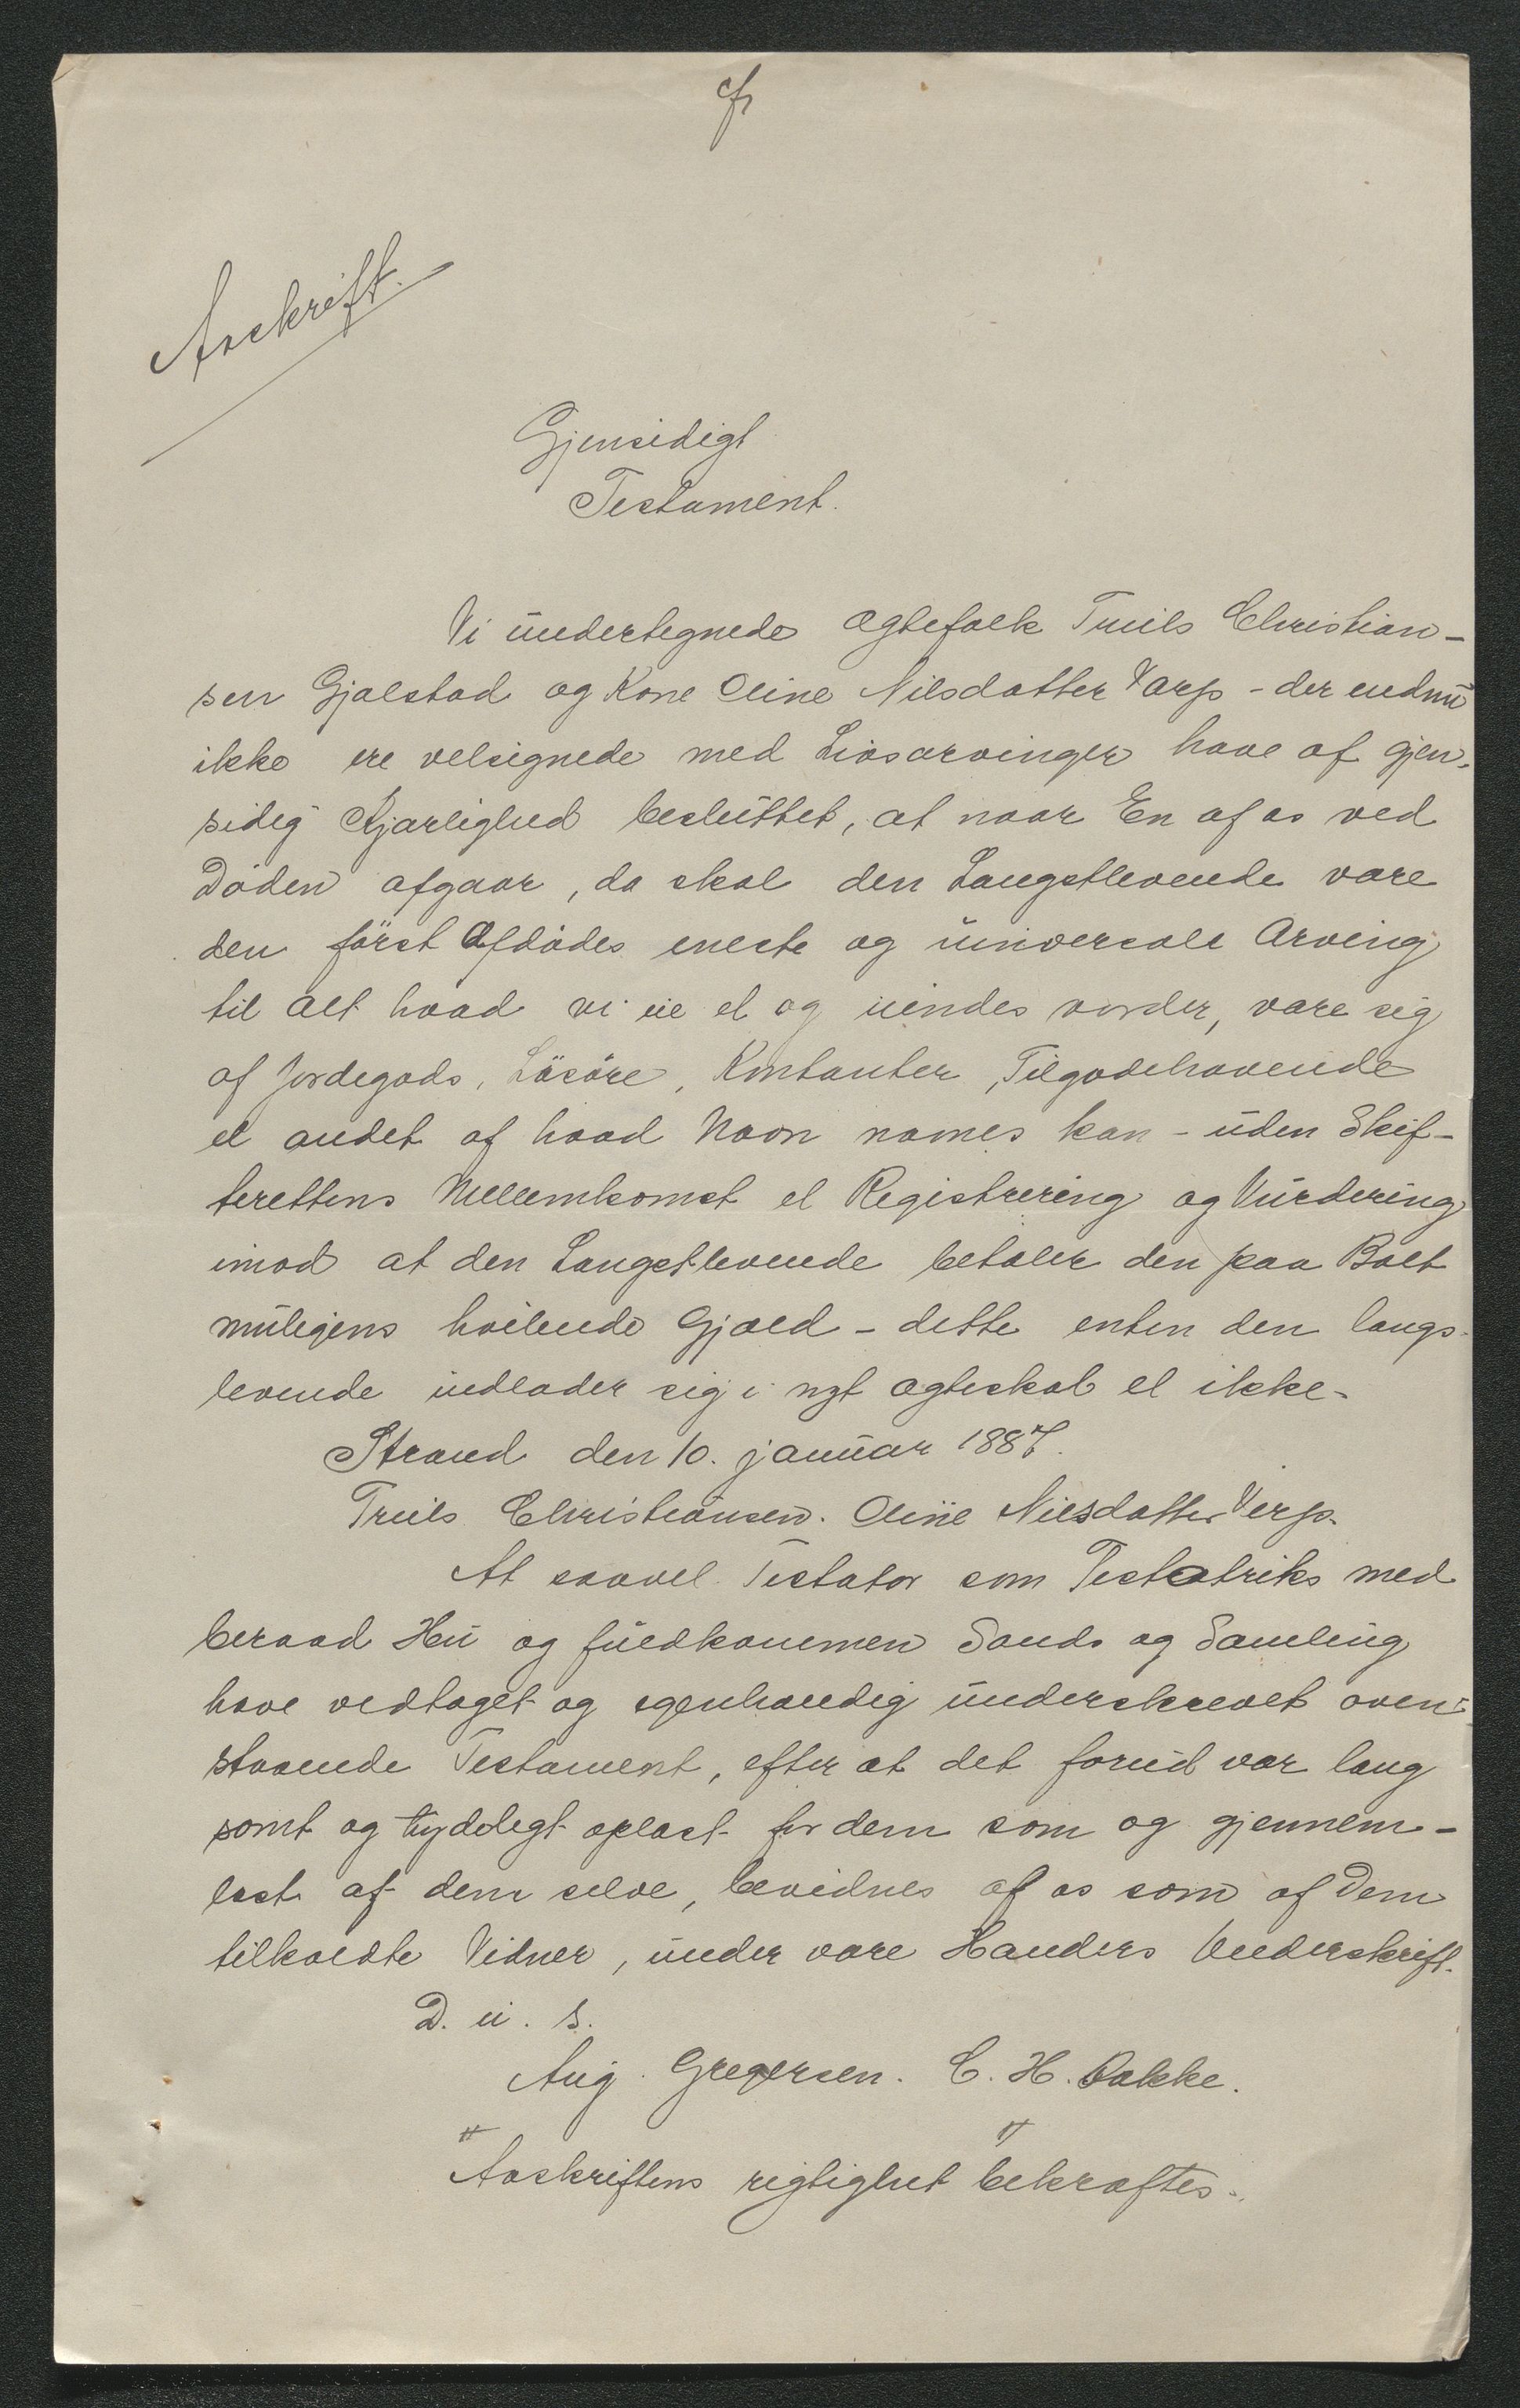 Avskrift.
Gjensidigt
Testament.
Vi undertegnede Ægtefolk Truls Christian-
sen Gjælstad og Kone Oline Nilsdatter Varp - der endnu
ikke ere velsignede med Livsarvinger have af gjen-
sidig Kjærlighed besluttet, at naar En af os ved
Döden afgaar, da skal den Længstlevende være
den först Afdödes eneste og universale Arving
til alt hvad vi eie el og eiendes vorder, være sig
af Jordegods, Lösöre, Kontanter, Tilgodehavende
el andet af hvad Navn nævnes kan - uden Skif-
terettens Mellemkomst el Registrering og Vurdering
imod at den Længstlevende betaler den paa Boet
muligens hvilende Gjæld - dette enten den længs-
levende indlader sig i nyt Ægteskab el ikke-
Strand den 10. januar 1887.
Truls Christiansen. Oline Nilsdatter Verp.
At saavel Testator som Testatriks med
beraad Hu og fuldkommen Sands og Samling
have vedtaget og egenhændig underskrevet oven-
staaende Testament, efter at det forud var lang
somt og tydeligt oplæst for dem som og gjennem-
læst af dem selve, bevidnes af os som af Dem
tilkaldte Vidner, under vore Hænders Underskrift.
D. u. s.
Aug. Gregersen. C. H. Bakke.
Avskriftens rigtighet bekræftes.